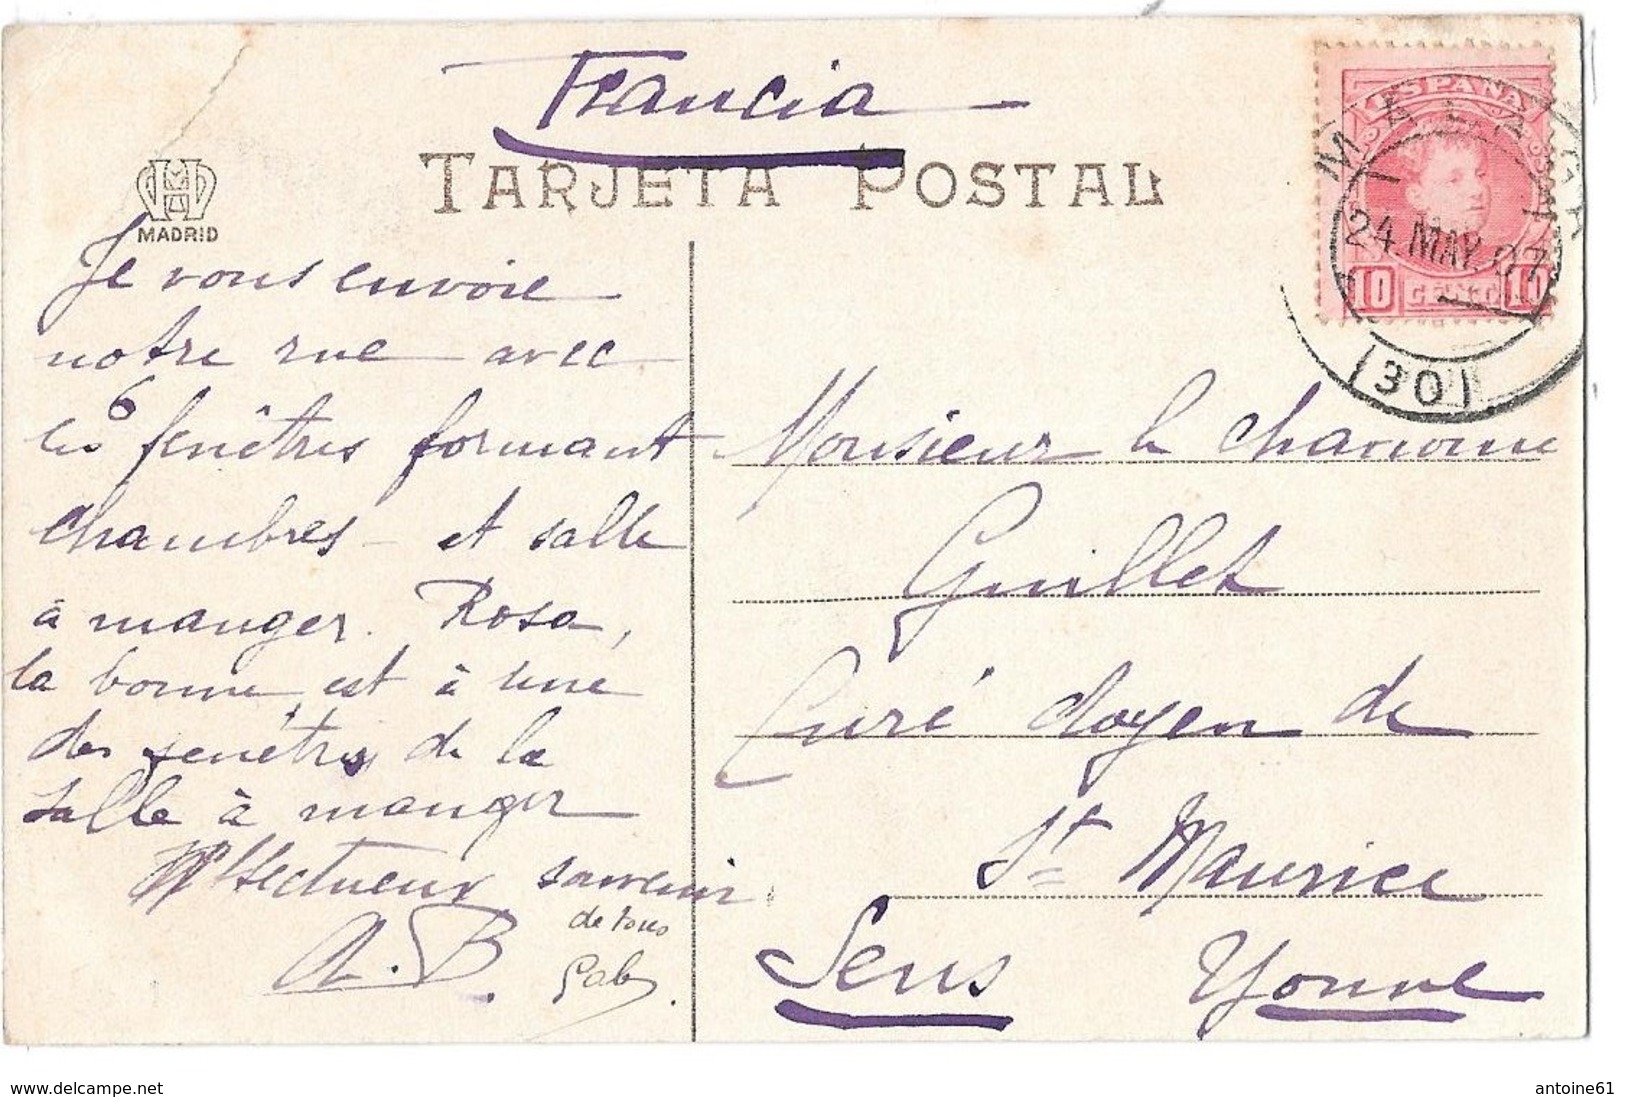 Francia
TARJETA POSTAL
MADRID
ESPAÑA
MALAGA
24.MAY.07
10 CENT 10
(30)
Je vous envoie
notre rue avec
les 6 fenêtres formant
chambres et salle
à manger. Rosa,
la bonne, est à une
des fenêtres de la
salle à manger
Affectueux souvenir
de tous
A. B.
Gab.
Monsieur le Chanoine
Guillet
Curé doyen de
St Maurice
Sens Yonne
www.delcampe.net
antoine61